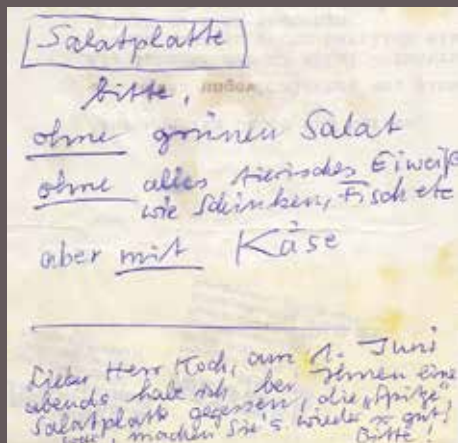 Salatplatte
bitte,
ohne grünen Salat
ohne alles tierisches Eiweiß
wie Schinken, Fisch etc
aber mit Käse
Lieber Herr Koch, am 1. Juni
abends habe ich bei Ihnen eine
Salatplatte gegessen, die „Spitze"
war, machen Sie's wieder so gut!
Bitte!